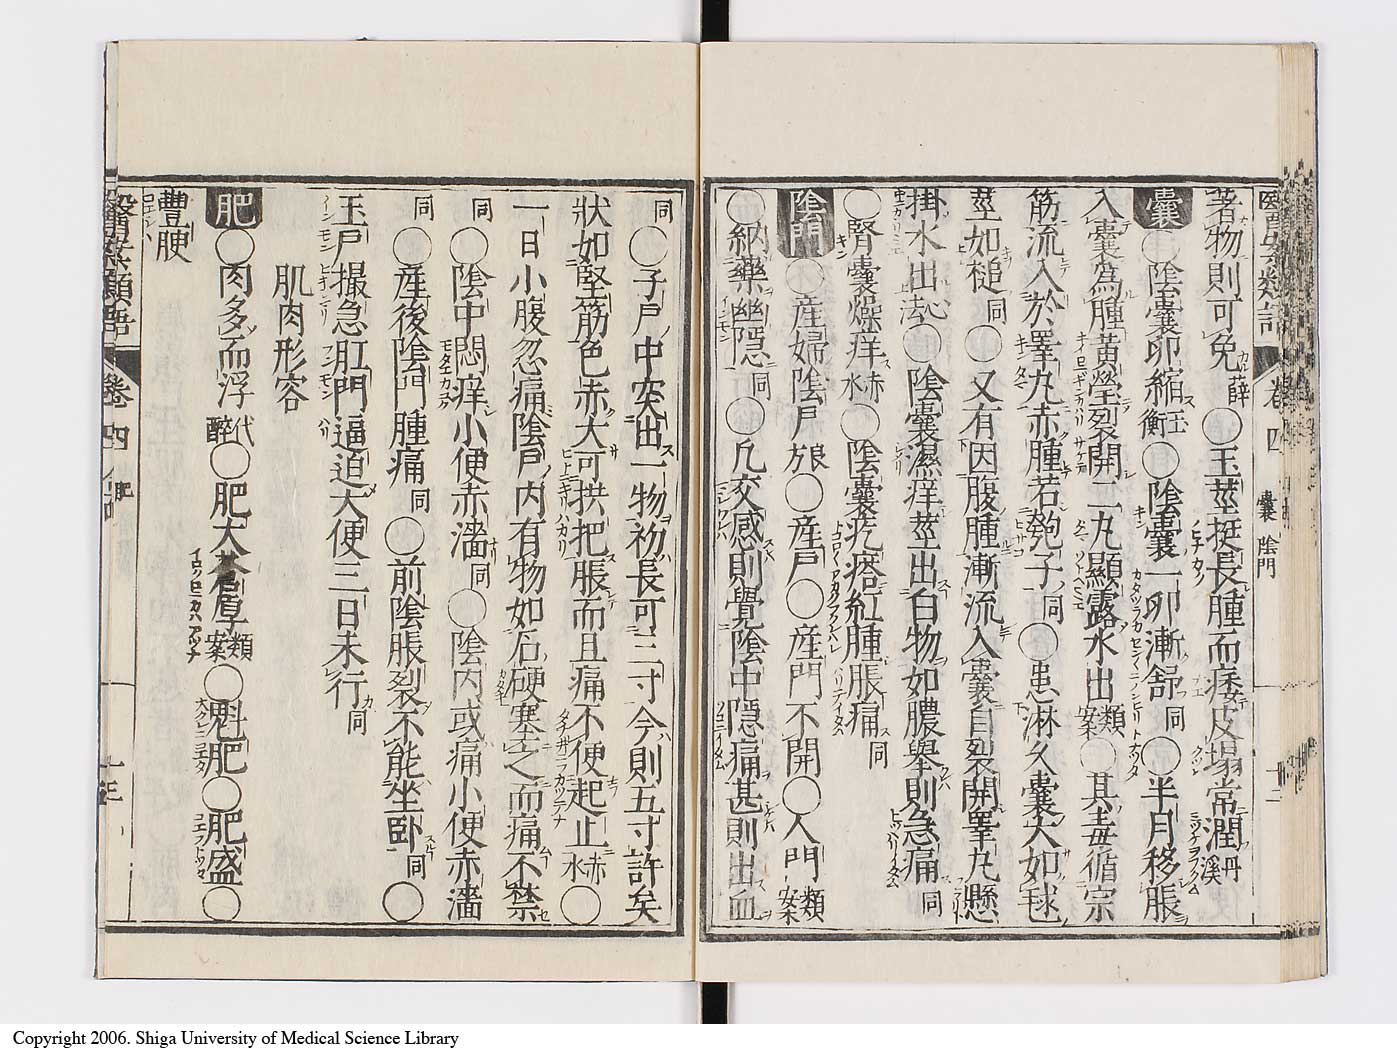 著物則可免薛○玉莖挺長腫而痿皮塌常潤丹溪
囊○陰囊卵縮玉衡○陰囊一卵漸舒同○半月移脹
入囊為腫黃瑩裂開二丸顯露水出類案○其毒循宗
筋流入於睪丸赤腫若匏子同○患淋久囊大如毬
莖如槌同○又有因腹腫漸流入囊自裂開睪丸懸
掛水出心法○陰囊濕痒莖出白物如膿舉則急痛同
○腎囊燥痒赤水○陰囊疙瘩紅腫脹痛同
陰門○產婦陰戶○產戶○產門不開○人門類案
○納藥幽隱同○凡交感則覺陰中隱痛甚則出血
醫案類語 卷四 囊 陰門
同○子戶中突出一物初長可三寸今則五寸許矣
狀如堅筋色赤大可拱把脹而且痛不便起止赤水○
一日小腹忽痛陰戶內有物如石硬塞之而痛不禁
同○陰中悶痒小便赤濇同○陰內或痛小便赤濇
同○產後陰門腫痛同○前陰脹裂不能坐臥同○
玉戶撮急肛門逼迫大便三日未行同
肌肉形容
肥○肉多而浮代醉○肥大蒼厚類案○魁肥○肥盛○
豐腴
醫案類語 卷四 肥
Copyright 2006. Shiga University of Medical Science Library